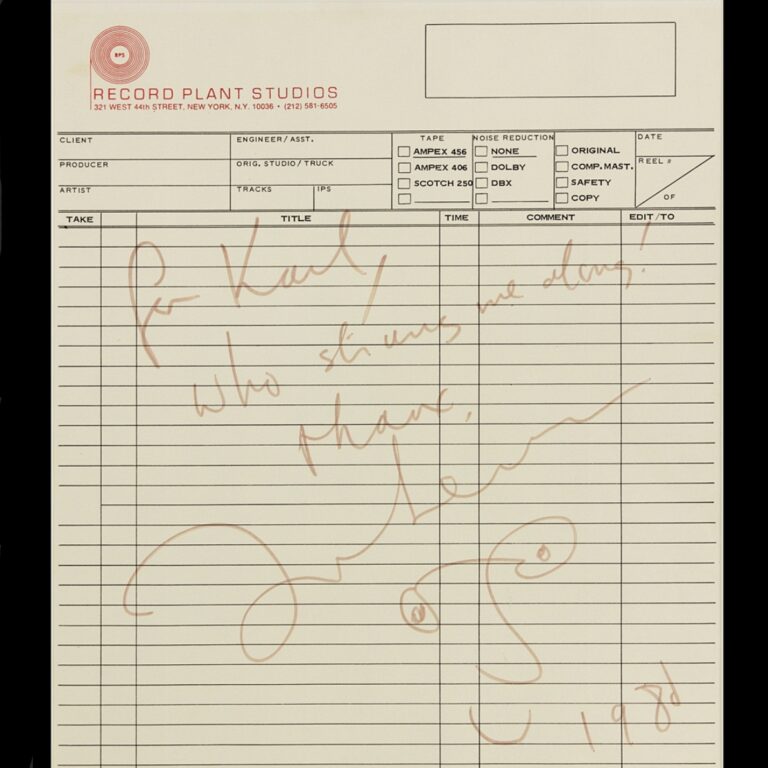 RPS
RECORD PLANT STUDIOS
321 WEST 44th STREET, NEW YORK, N.Y. 10036 • (212) 581-6505
CLIENT
ENGINEER/ASST.
TAPE
NOISE REDUCTION
DATE
AMPEX 456
NONE
ORIGINAL
PRODUCER
ORIG. STUDIO/TRUCK
AMPEX 406
DOLBY
COMP. MAST.
REEL #
ARTIST
TRACKS
IPS
SCOTCH 250
DBX
SAFETY
COPY
OF
TAKE
TITLE
TIME
COMMENT
EDIT/TO
for Karl,
who strung me along!
thanx,
John Lennon
1980